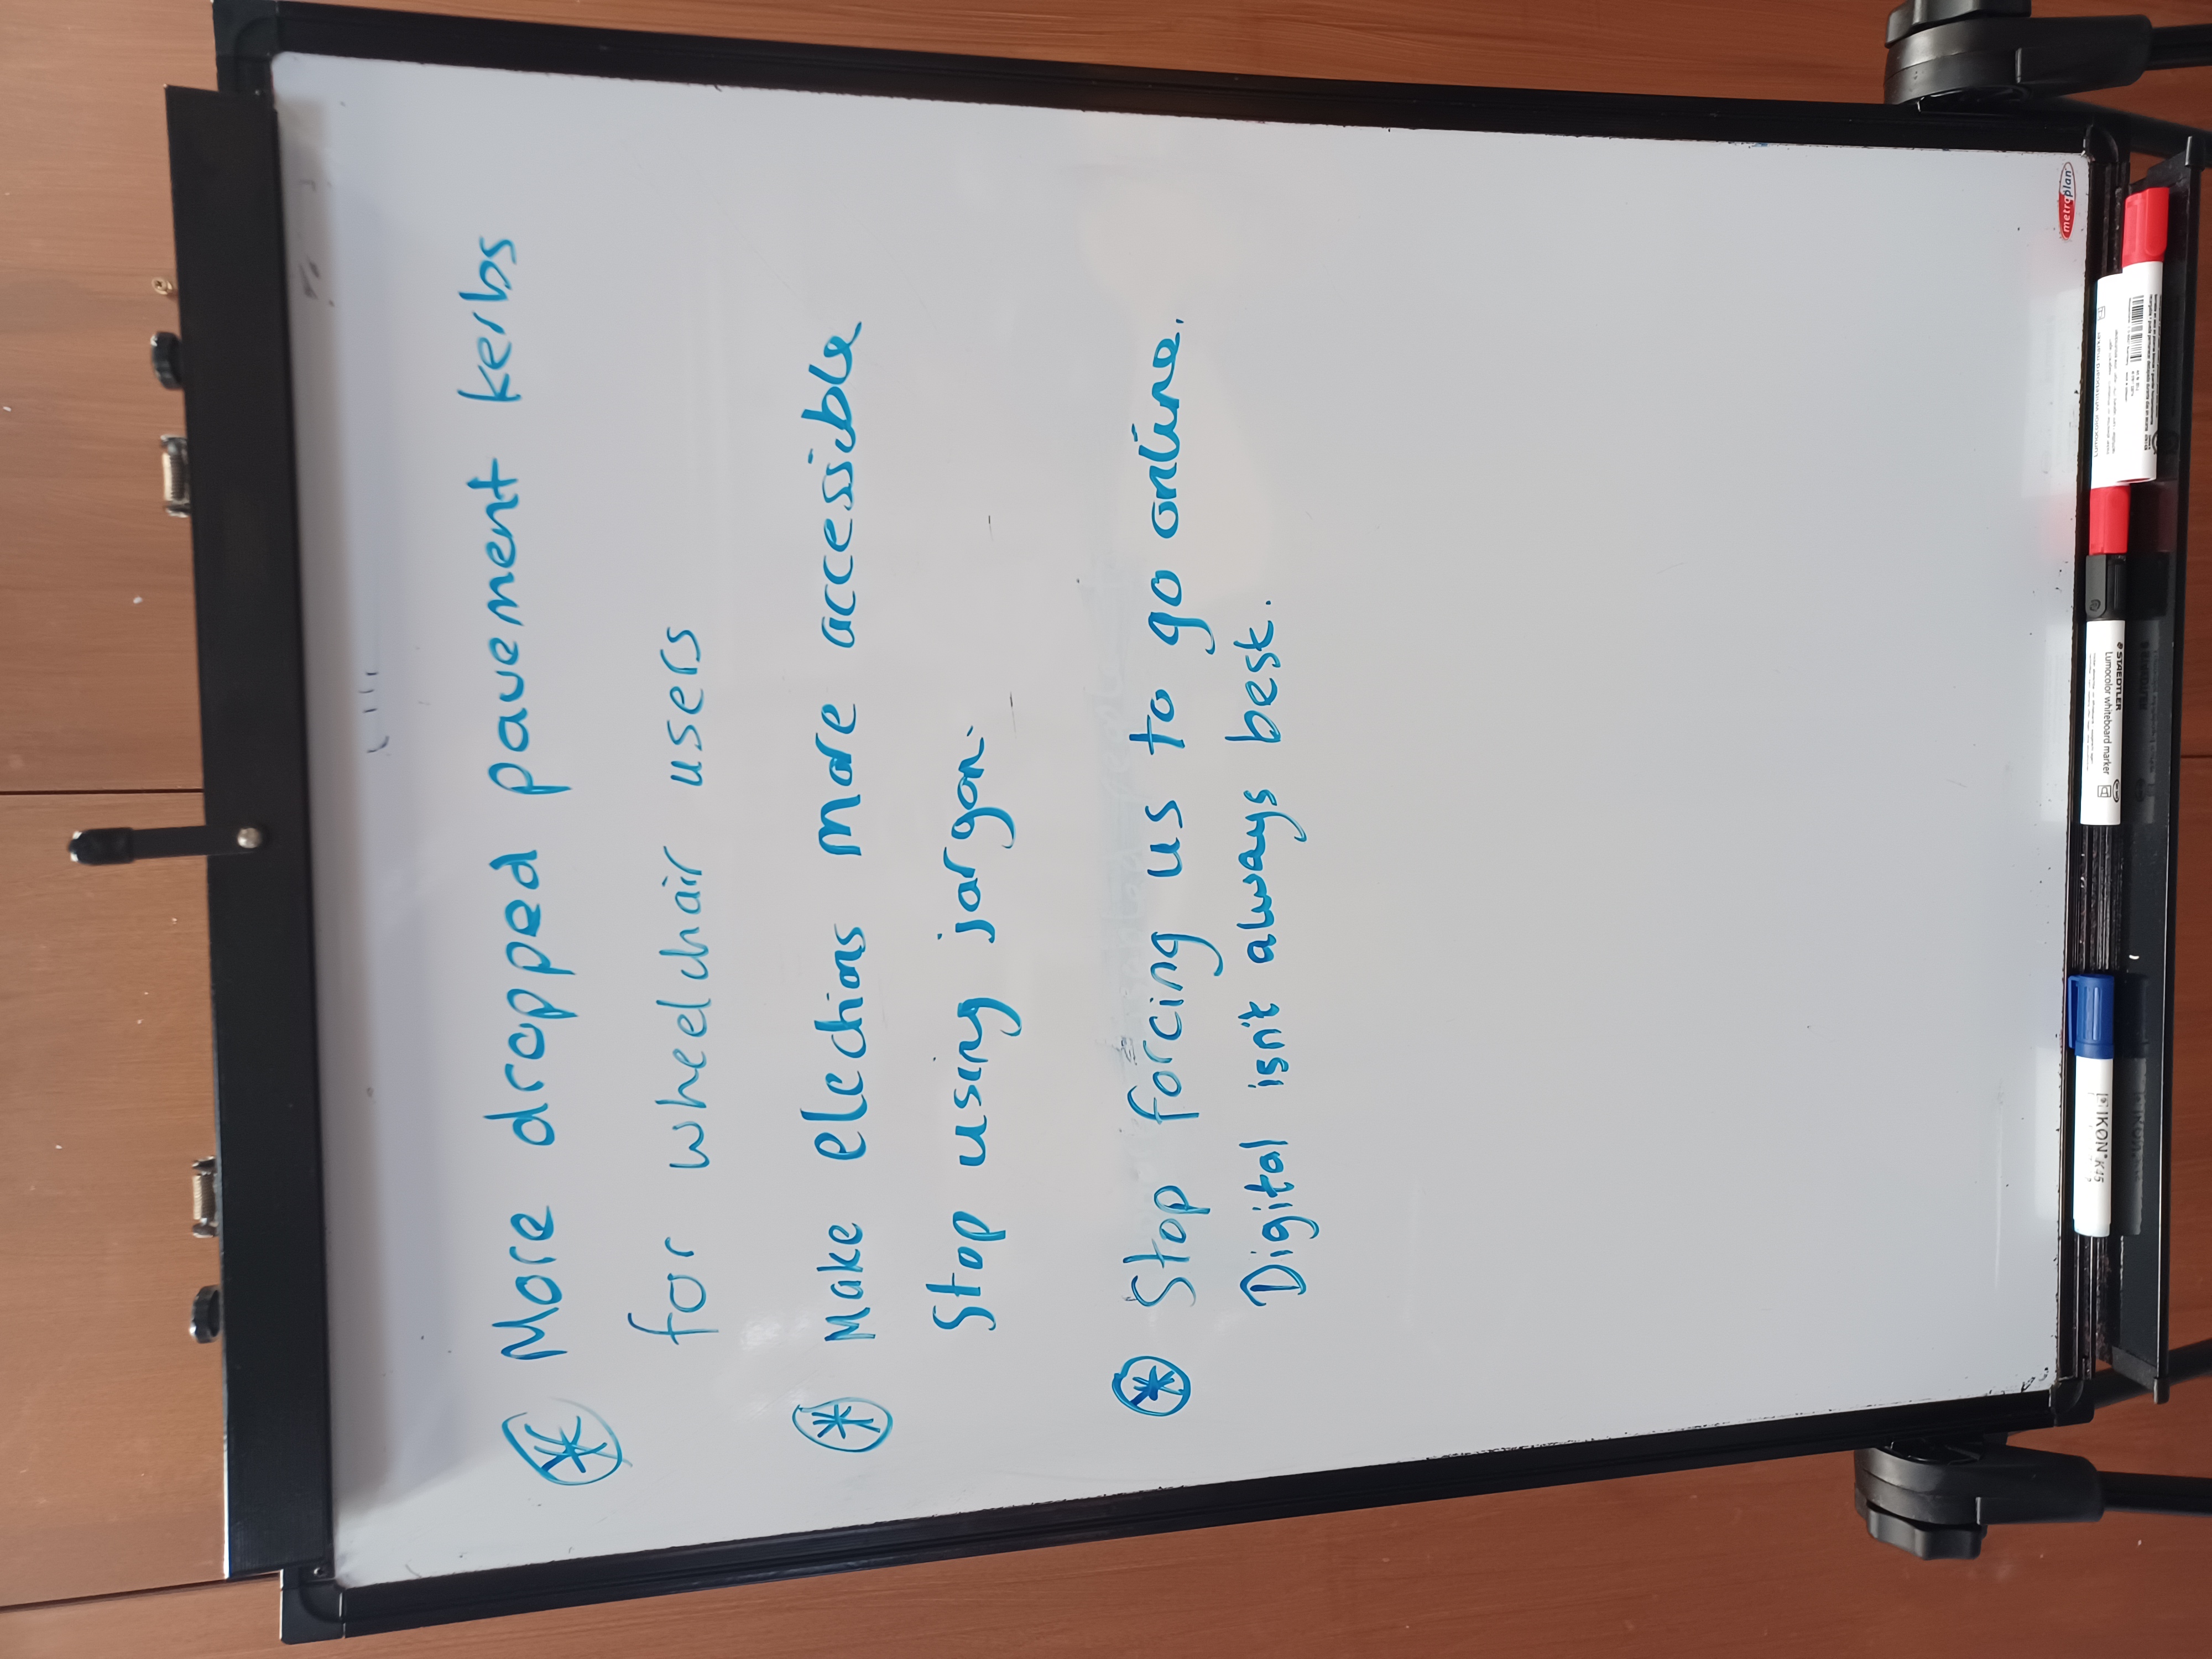 ⊛ More dropped pavement kerbs
for wheelchair users
⊛ Make elections more accessible
Stop using jargon.
⊛ Stop forcing us to go online.
Digital isn't always best.
metroplan
STAEDTLER
Lumocolor whiteboard marker
IKON K45